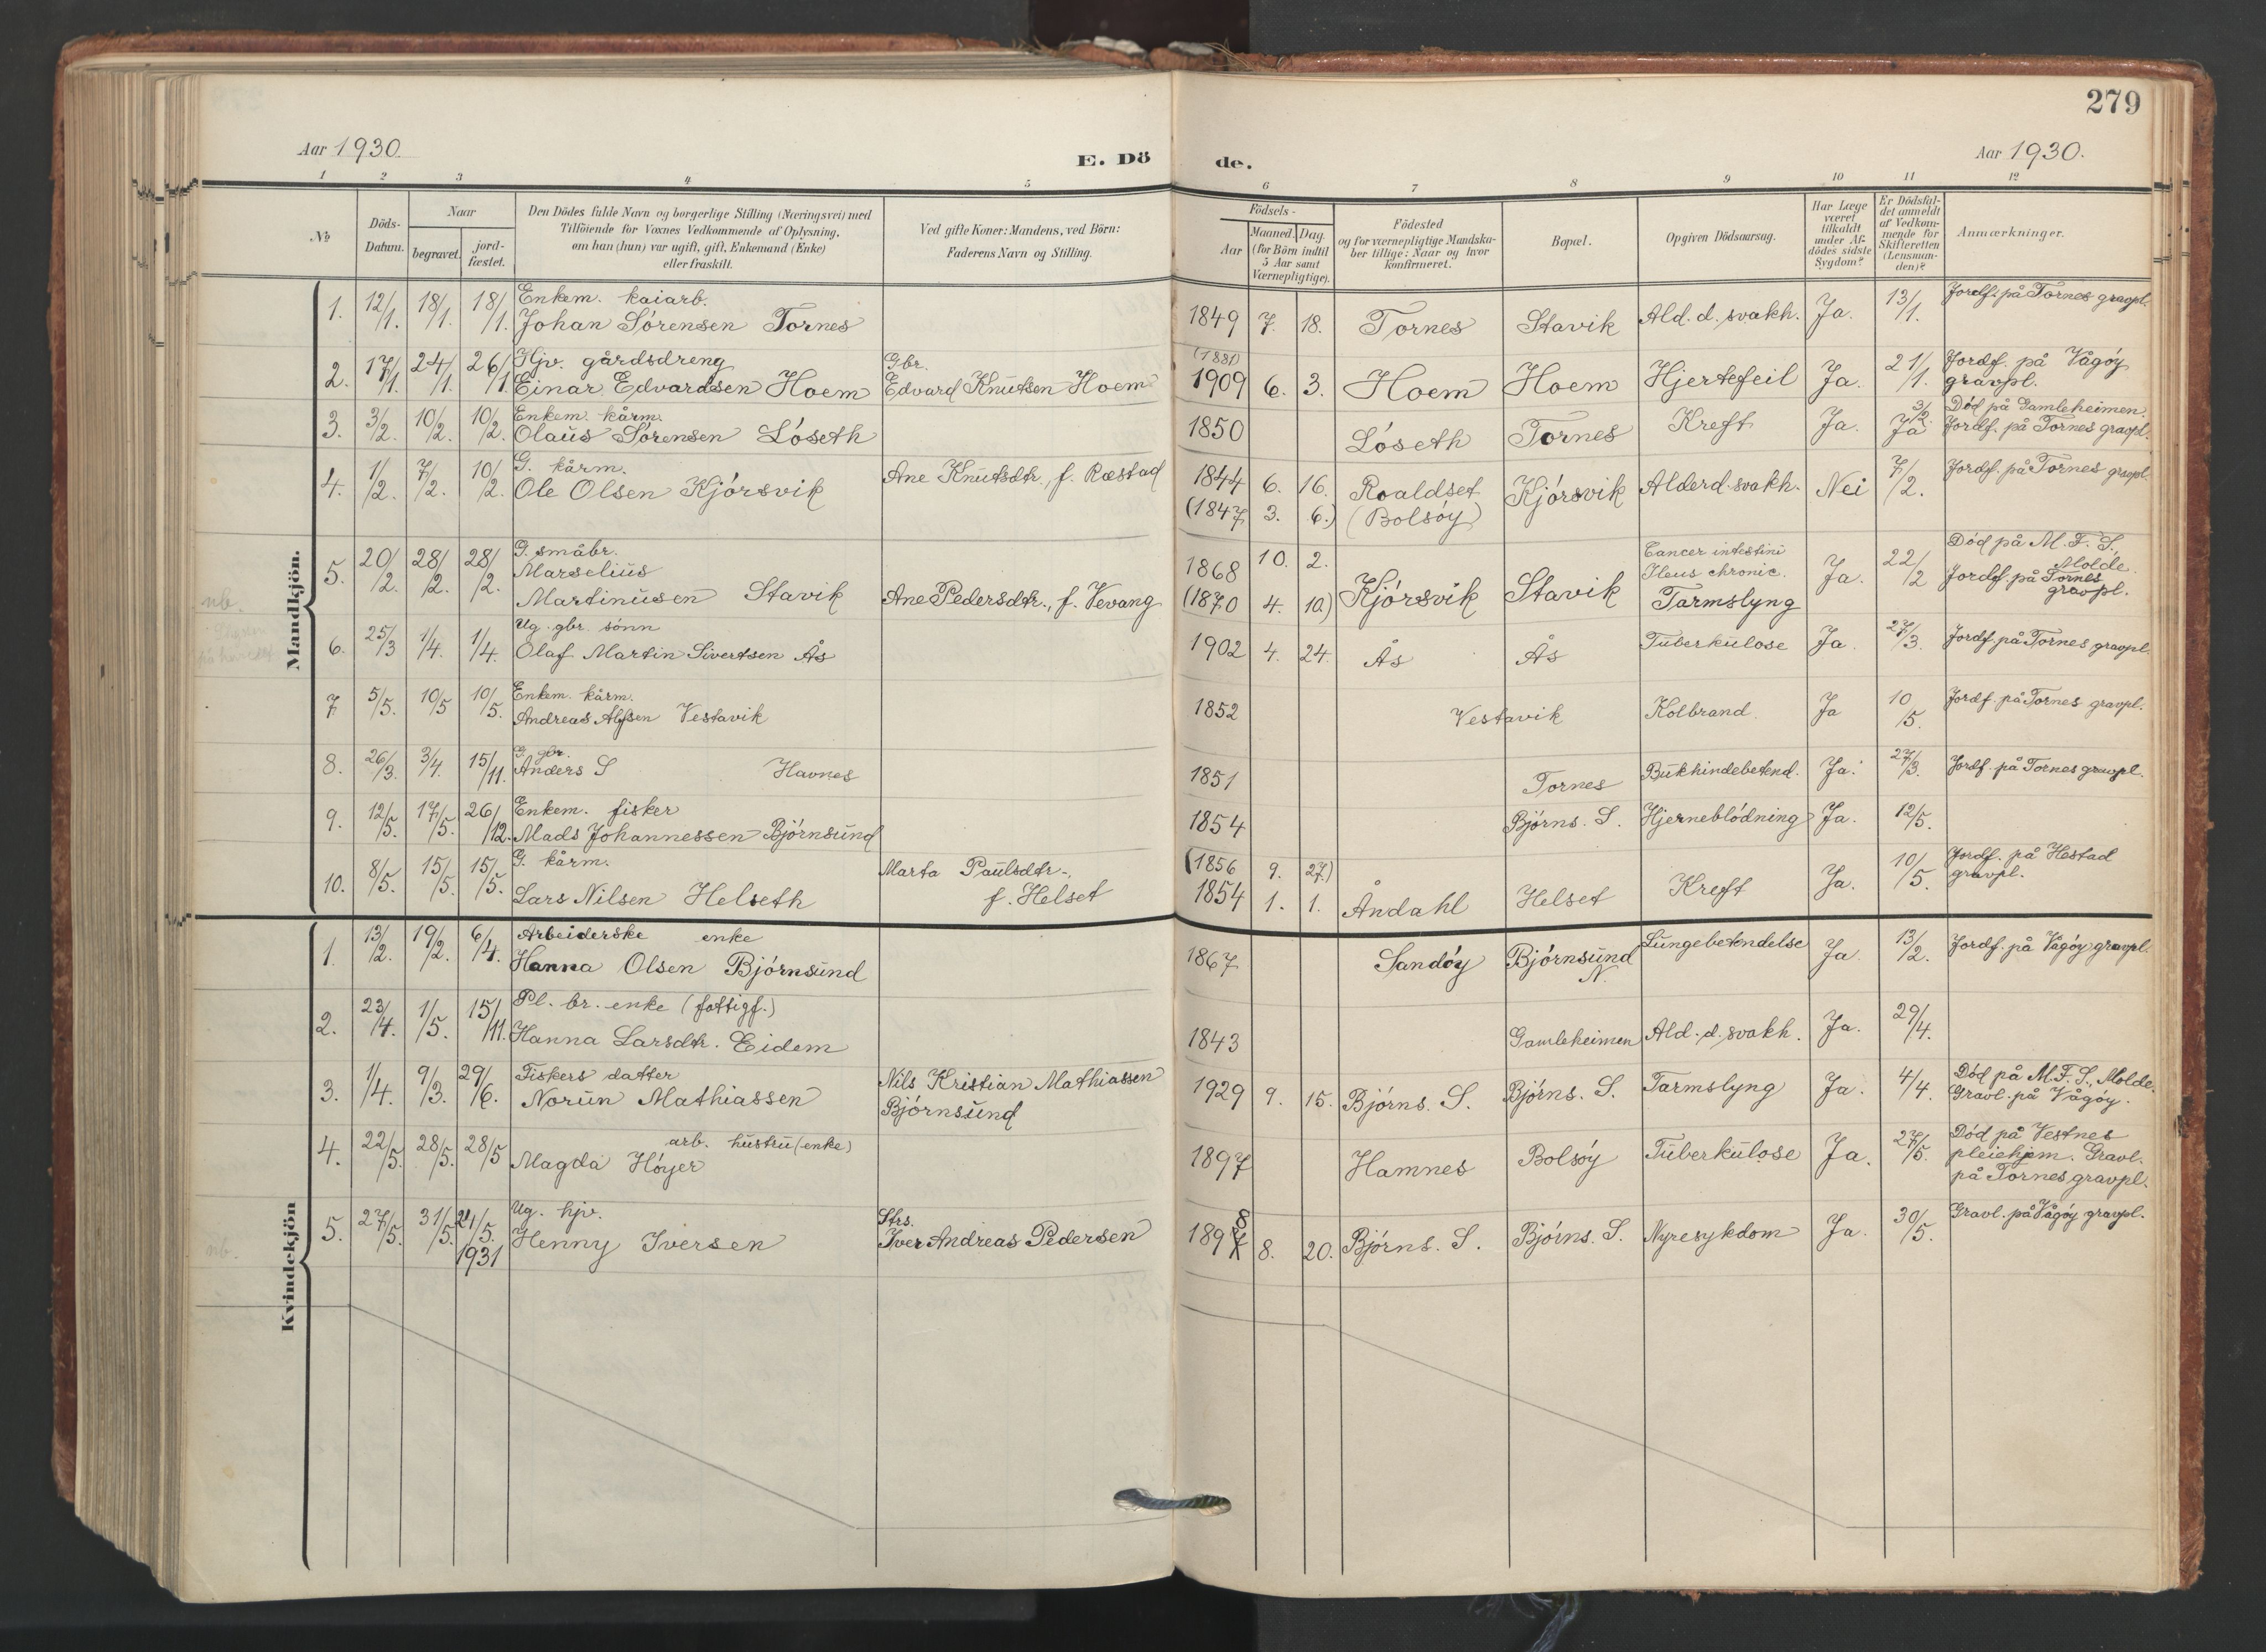 279
Aar 1930.
E. Dö de.
Aar 1930.
1 2 3 4 5 6 7 8 9 10 11 12
№
Döds-Datum.
Naar
begravet.
jord-fæstet.
Den Dödes fulde Navn og borgerlige Stilling (Næringsvei) med
Tilföiende for Voxnes Vedkommende af Oplysning,
om han (hun) var ugift, gift, Enkemand (Enke)
eller fraskilt.
Ved gifte Koner: Mandens, ved Börn:
Faderens Navn og Stilling.
Födsels-
Aar
Maaned. Dag.
(for Börn indtil
5 Aar samt
Værnepligtige).
Födested
og for værnepligtige Mandska-
ber tillige: Naar og hvor
konfirmeret.
Bopæl.
Opgiven Dödsaarsag.
Har Læge
været
tilkaldt
under Af-
dödes sidste
Sygdom?
Er Dödsfal-
det anmeldt
af Vedkom-
mende for
Skifteretten
(Lensman-
den)?
Anmærkninger.
Mandkjön.
1. 12/1. 18/1. 18/1. Enkem. kaiarb.
Johan Sörensen Tornes 1849 7. 18. Tornes Stavik Ald. d. svakh. Ja. 13/1. Jordf. på Tornes gravpl.
2. 17/1. 24/1. 26/1 Hjv. gårdsdreng Gbr. (1881)
Einar Edvardsen Hoem Edvard Knutsen Hoem 1909 6. 3. Hoem Hoem Hjertefeil Ja. 21/1. Jordf. på Vågöy
gravpl.
3. 3/2. 10/2. 10/2. Enkem. kårm.
Olaus Sörensen Löseth 1850 Löseth Tornes Kreft Ja. 3/2. Ja Död på Gamleheimen.
Jordf. på Tornes gravpl.
4. 1/2. 7/2. 10/2. G. kårm.
Ole Olsen Kjörsvik Ane Knutsdtr., f. Ræstad 1844 6. 16. Roaldset Kjörsvik Alderd. svakh. Nei 7/2. Jordf. på Tornes gravpl.
(1847 3. 6.) (Bolsöy)
5. 20/2. 28/2. 28/2. G. småbr.
Marselius
Martinusen Stavik Ane Pedersdtr., f. Vevang 1868 10. 2. Kjörsvik Stavik Cancer intestini
Ileus chronic.
Tarmslyng Ja. 22/2 Död på M. F. S.
Molde.
Jordf. på Tornes
gravpl.
(1870 4. 10.)
nb.
6. 25/3 1/4. 1/4. Ug. gbr. sönn
Olaf Martin Sivertsen Ås 1902 4. 24. Ås Ås Tuberkulose Ja. 27/3. Jordf. på Tornes gravpl.
7 5/5. 10/5 10/5. Enkem. kårm.
Andreas Vestavik 1852 Vestavik Kolbrand. Ja 10/5. Jordf. på Tornes gravpl.
8. 26/3. 3/4. 15/11. G. gbr.
Anders S Havnes 1851 Tornes Bukhindebetend. Ja. 27/3. Jordf. på Tornes gravpl.
9. 12/5. 17/5. 26/12. Enkem. fisker
Mads Johannessen Björnsund 1854 Björns. S. Hjerneblödning Ja. 12/5.
10. 8/5. 15/5. 15/5. G. kårm. Marta Paulsdtr., (1856 9. 27.)
Lars Nilsen Helseth f. Helset 1854 1. 1. Åndahl Helset Kreft Ja. 10/5. Jordf. på Hestad
gravpl.
Kvindekjön
1. 13/2. 19/2. 6/4. Arbeiderske enke
Hanna Olsen Björnsund 1867 Sandöy Björnsund
N. Lungebetendelse Ja. 13/2. Jordf. på Vågöy gravpl.
2. 23/4. 1/5. 15/11. Pl. br. enke (fattigf.)
Hanna Larsdtr. Eidem 1843 Gamleheimen Ald. d. svakh. Ja. 29/4.
3. 1/4. 9/3. 29/6. Fiskers datter Nils Kristian Mathiassen
Norun Mathiassen Björnsund 1929 9. 15. Björns. S. Björns. S. Tarmslyng Ja. 4/4. Död på M. F. S., Molde.
Gravl. på Vågöy.
4. 22/5. 28/5. 28/5 arb. hustru (enke)
Magda Höyer 1897 Hamnes Bolsöy Tuberkulose Ja. 27/5. Död på Vestnes
pleiehjem. Gravl.
på Tornes gravpl.
nb.
5. 27/5. 31/5. 24/5. 1931 Ug. hjv. Strs.
Henny Iversen Iver Andreas Pedersen 1898 8. 20. Björns. S. Björns. S. Nyresykdom Ja. 30/5. Gravl. på Vågöy gravpl.